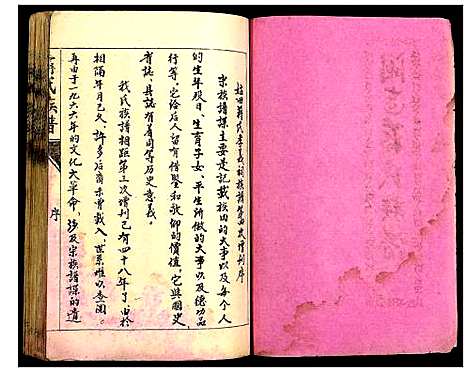 姑田蒋氏孝义祠族谱第四次增刊序
宗族谱谍主要是记载族内的大事以及每个人
的生卒殁日、生育子女、平生所做的大事以及德功品
行等，它给后人留有借鉴和敬仰的价值，它与国史
省志、县志有着同等历史意义。
我氏族谱相距第三次增刊已有四十八年了由于
相隔年月已久、许多后裔未曾载入、世系难以查阅。
再由于一九六六年的文化大革命，涉及宗族谱谍的遗
氏族谱
序